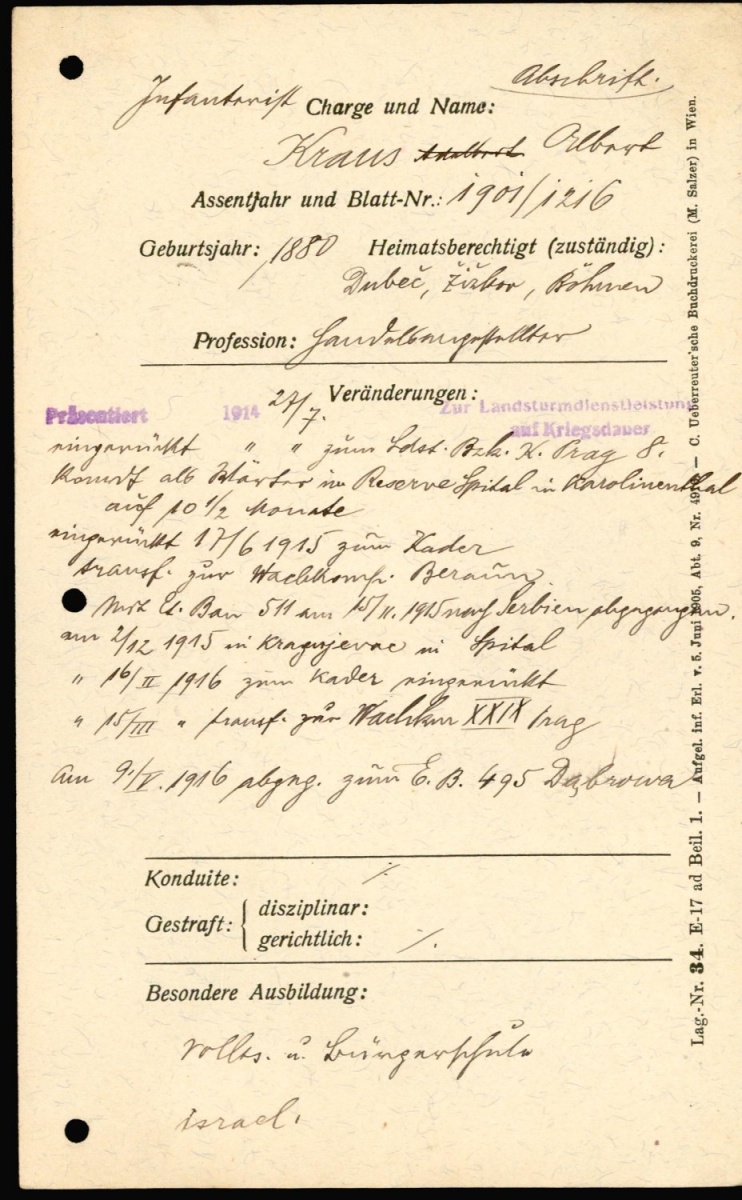 Abschrift.
Infanterist Charge und Name:
Kraus Adalbert Albert
Assentjahr und Blatt-Nr.: 1901/1216
Geburtsjahr: 1880 Heimatsberechtigt (zuständig):
Dubeč, Žižkov, Böhmen
Profession: Handelsangestellter
Veränderungen:
Präsentiert 1914 27/7. Zur Landsturmdienstleistung
auf Kriegsdauer
eingerückt " " zum Ldst. Bzk. K. Prag 8.
Komdt als Wärter im Reserve Spital in Karolinenthal
auf 10 1/2 Monate
eingerückt 17/6 1915 zum Kader
transf. zur Wachkomp. Beraun
Mit Et. Baon 511 am 15/11. 1915 nach Serbien abgegangen.
am 2/12 1915 in Kragujevac in Spital
" 16/II 1916 zum Kader eingerückt
" 15/III " transf. zur XXIX Prag
Am 9./V. 1916 abgng. zum E. B. 495 Dąbrowa
Konduite: ./.
Gestraft: disziplinar:
gerichtlich: ./.
Besondere Ausbildung:
Volks. u. Bürgerschule
israel.
Lag.-Nr. 34. E-17 ad Beil. 1. — Aufgel. inf. Erl. v. 5. Juni 1905, Abt. 9, Nr. — C. Ueberreuter'sche Buchdruckerei (M. Salzer) in Wien.